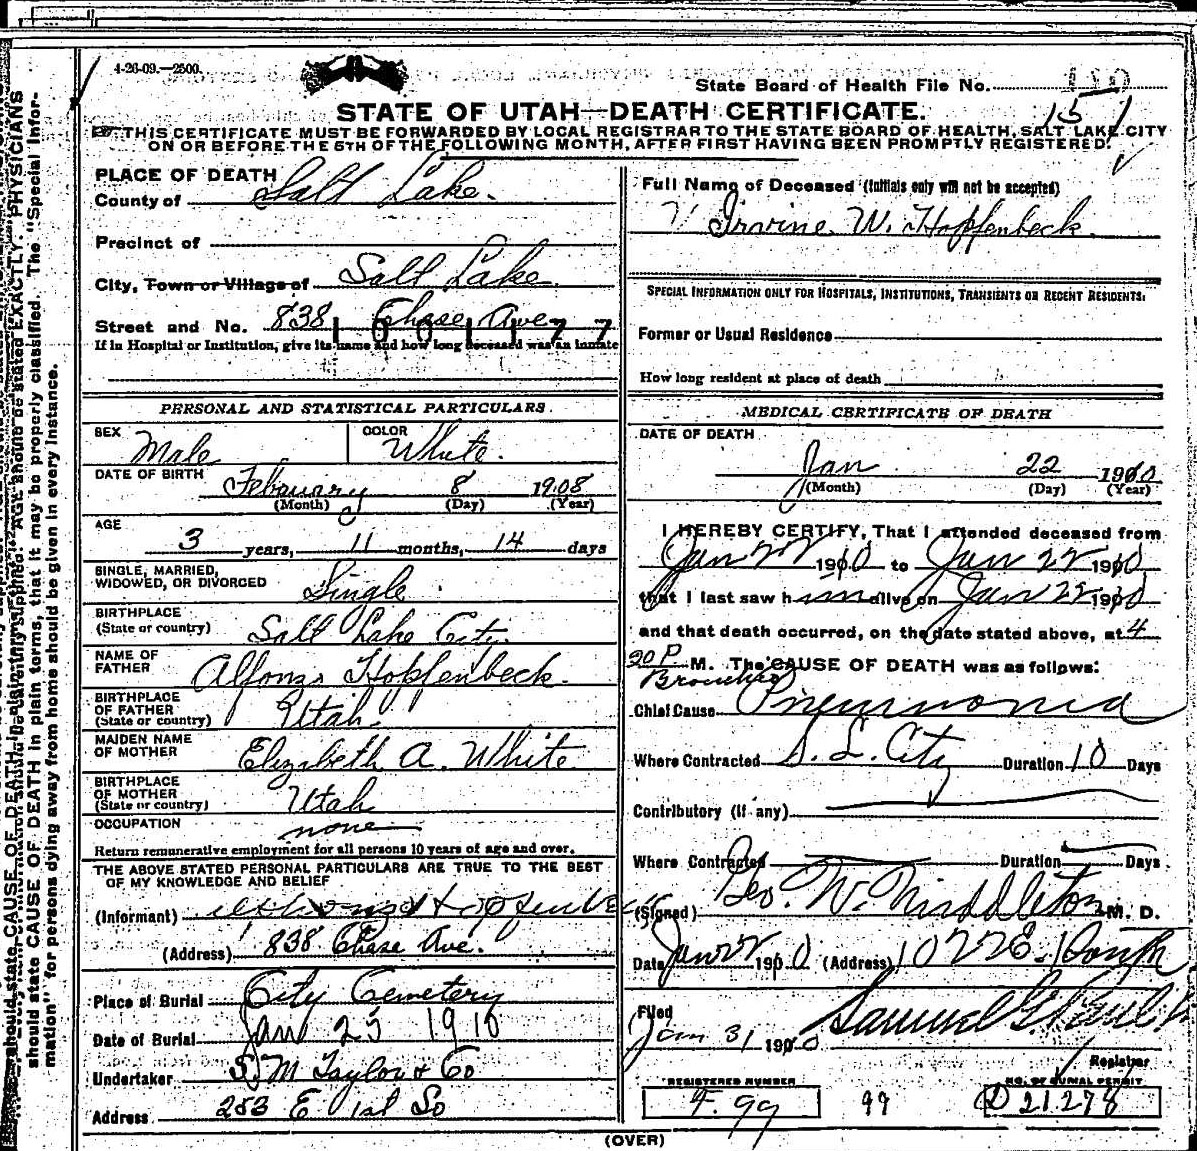 4-26-09.—2500.
State Board of Health File No.
151
STATE OF UTAH—DEATH CERTIFICATE.
THIS CERTIFICATE MUST BE FORWARDED BY LOCAL REGISTRAR TO THE STATE BOARD OF HEALTH, SALT LAKE CITY
ON OR BEFORE THE 5TH OF THE FOLLOWING MONTH, AFTER FIRST HAVING BEEN PROMPTLY REGISTERED.
PLACE OF DEATH
County of Salt Lake.
Precinct of
City, Town or Village of Salt Lake.
Street and No. 838 Chase Ave
1001177
If in Hospital or Institution, give its name and how long deceased was an inmate
PERSONAL AND STATISTICAL PARTICULARS.
SEX Male COLOR White.
DATE OF BIRTH Febuuary 8 1908
(Month) (Day) (Year)
AGE
3 years, 11 months, 14 days
SINGLE, MARRIED,
WIDOWED, OR DIVORCED Single.
BIRTHPLACE
(State or country) Salt Lake City.
NAME OF
FATHER Alfonzo Hopfenbeck.
BIRTHPLACE
OF FATHER
(State or country) Utah.
MAIDEN NAME
OF MOTHER Elizabeth A. White
BIRTHPLACE
OF MOTHER
(State or country) Utah
OCCUPATION none
Return remunerative employment for all persons 10 years of age and over.
THE ABOVE STATED PERSONAL PARTICULARS ARE TRUE TO THE BEST
OF MY KNOWLEDGE AND BELIEF
(Informant) Alfonzo Hopfenbeck
(Address) 838 Chase Ave.
Place of Burial City Cemetery
Date of Burial Jan 25 1910
Undertaker S. M Taylor & Co
Address 253 E 1st So
Full Name of Deceased (Initials only will not be accepted)
Irvine W. Hopfenbeck.
SPECIAL INFORMATION ONLY FOR HOSPITALS, INSTITUTIONS, TRANSIENTS OR RECENT RESIDENTS:
Former or Usual Residence
How long resident at place of death
MEDICAL CERTIFICATE OF DEATH
DATE OF DEATH
Jan 22 1910
(Month) (Day) (Year)
I HEREBY CERTIFY, That I attended deceased from
Jan 22 1910 to Jan 22 1910
that I last saw him alive on Jan 22 1910
and that death occurred, on the date stated above, at 4
30 P M. The CAUSE OF DEATH was as follows:
Chief Cause Pneumonia
Where Contracted S. L. City Duration 10 Days
Contributory (if any)
Where Contracted Duration Days.
(Signed) Geo. W. Middleton M. D.
Date Jan 22 1910 (Address) 1022 E. 1 South
Filed
Jan 31 1910 Samuel G. Paul
Registrar
REGISTERED NUMBER NO. OF BURIAL PERMIT
F. 99 99 D 21278
(OVER)
should state CAUSE OF DEATH in plain terms, that it may be properly classified. The "Special Infor-
mation" for persons dying away from home should be given in every instance.